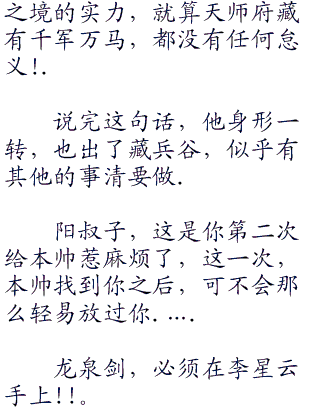 之境的实力，就算天师府藏
有千军万马，都没有任何怠
义!.
说完这句话，他身形一
转，也出了藏兵谷，似乎有
其他的事清要做.
阳叔子，这是你第二次
给本帅惹麻烦了，这一次，
本帅找到你之后，可不会那
么轻易放过你.….
龙泉剑，必须在李星云
手上!!。